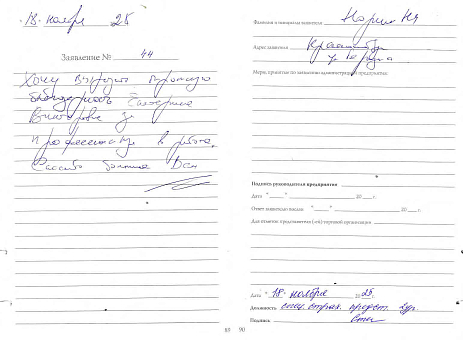 18. ноября 25
Заявление № 44
Хочу выразить огромную
благодарность Екатерине
Викторовне за
профессионализм в работе.
Спасибо большое Вам
Фамилия и инициалы заявителя
Адрес заявителя
Меры, принятые по заявлению администрацией предприятия:
Подпись руководителя предприятия
Дата " " 20 г.
Ответ заявителю послан " " 20 г.
Для отметок представителя (-ей) торговой организации
Дата "18" ноября 2025г.
Должность спец. страх.
Подпись
89 90